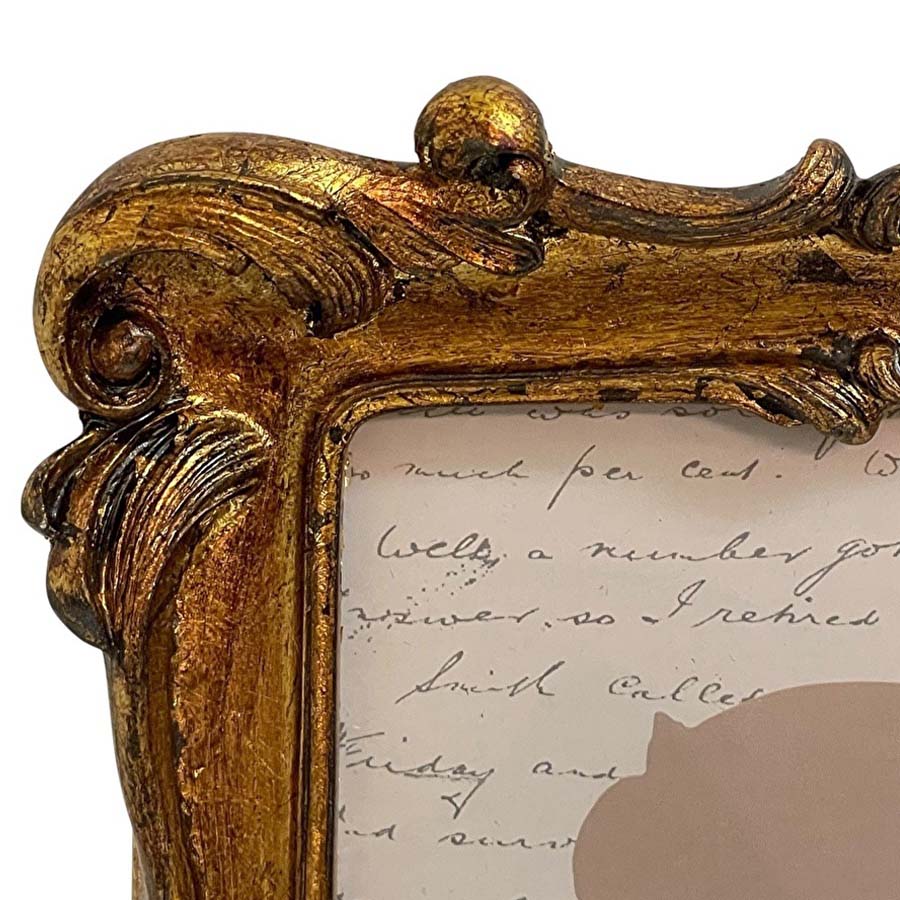 was so
much per cent. W
Well, a number go
answer, so I retired
Smith called
Friday and
d surv